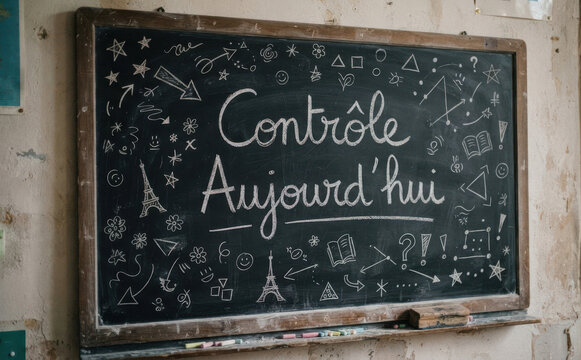 Contrôle
Aujourd'hui